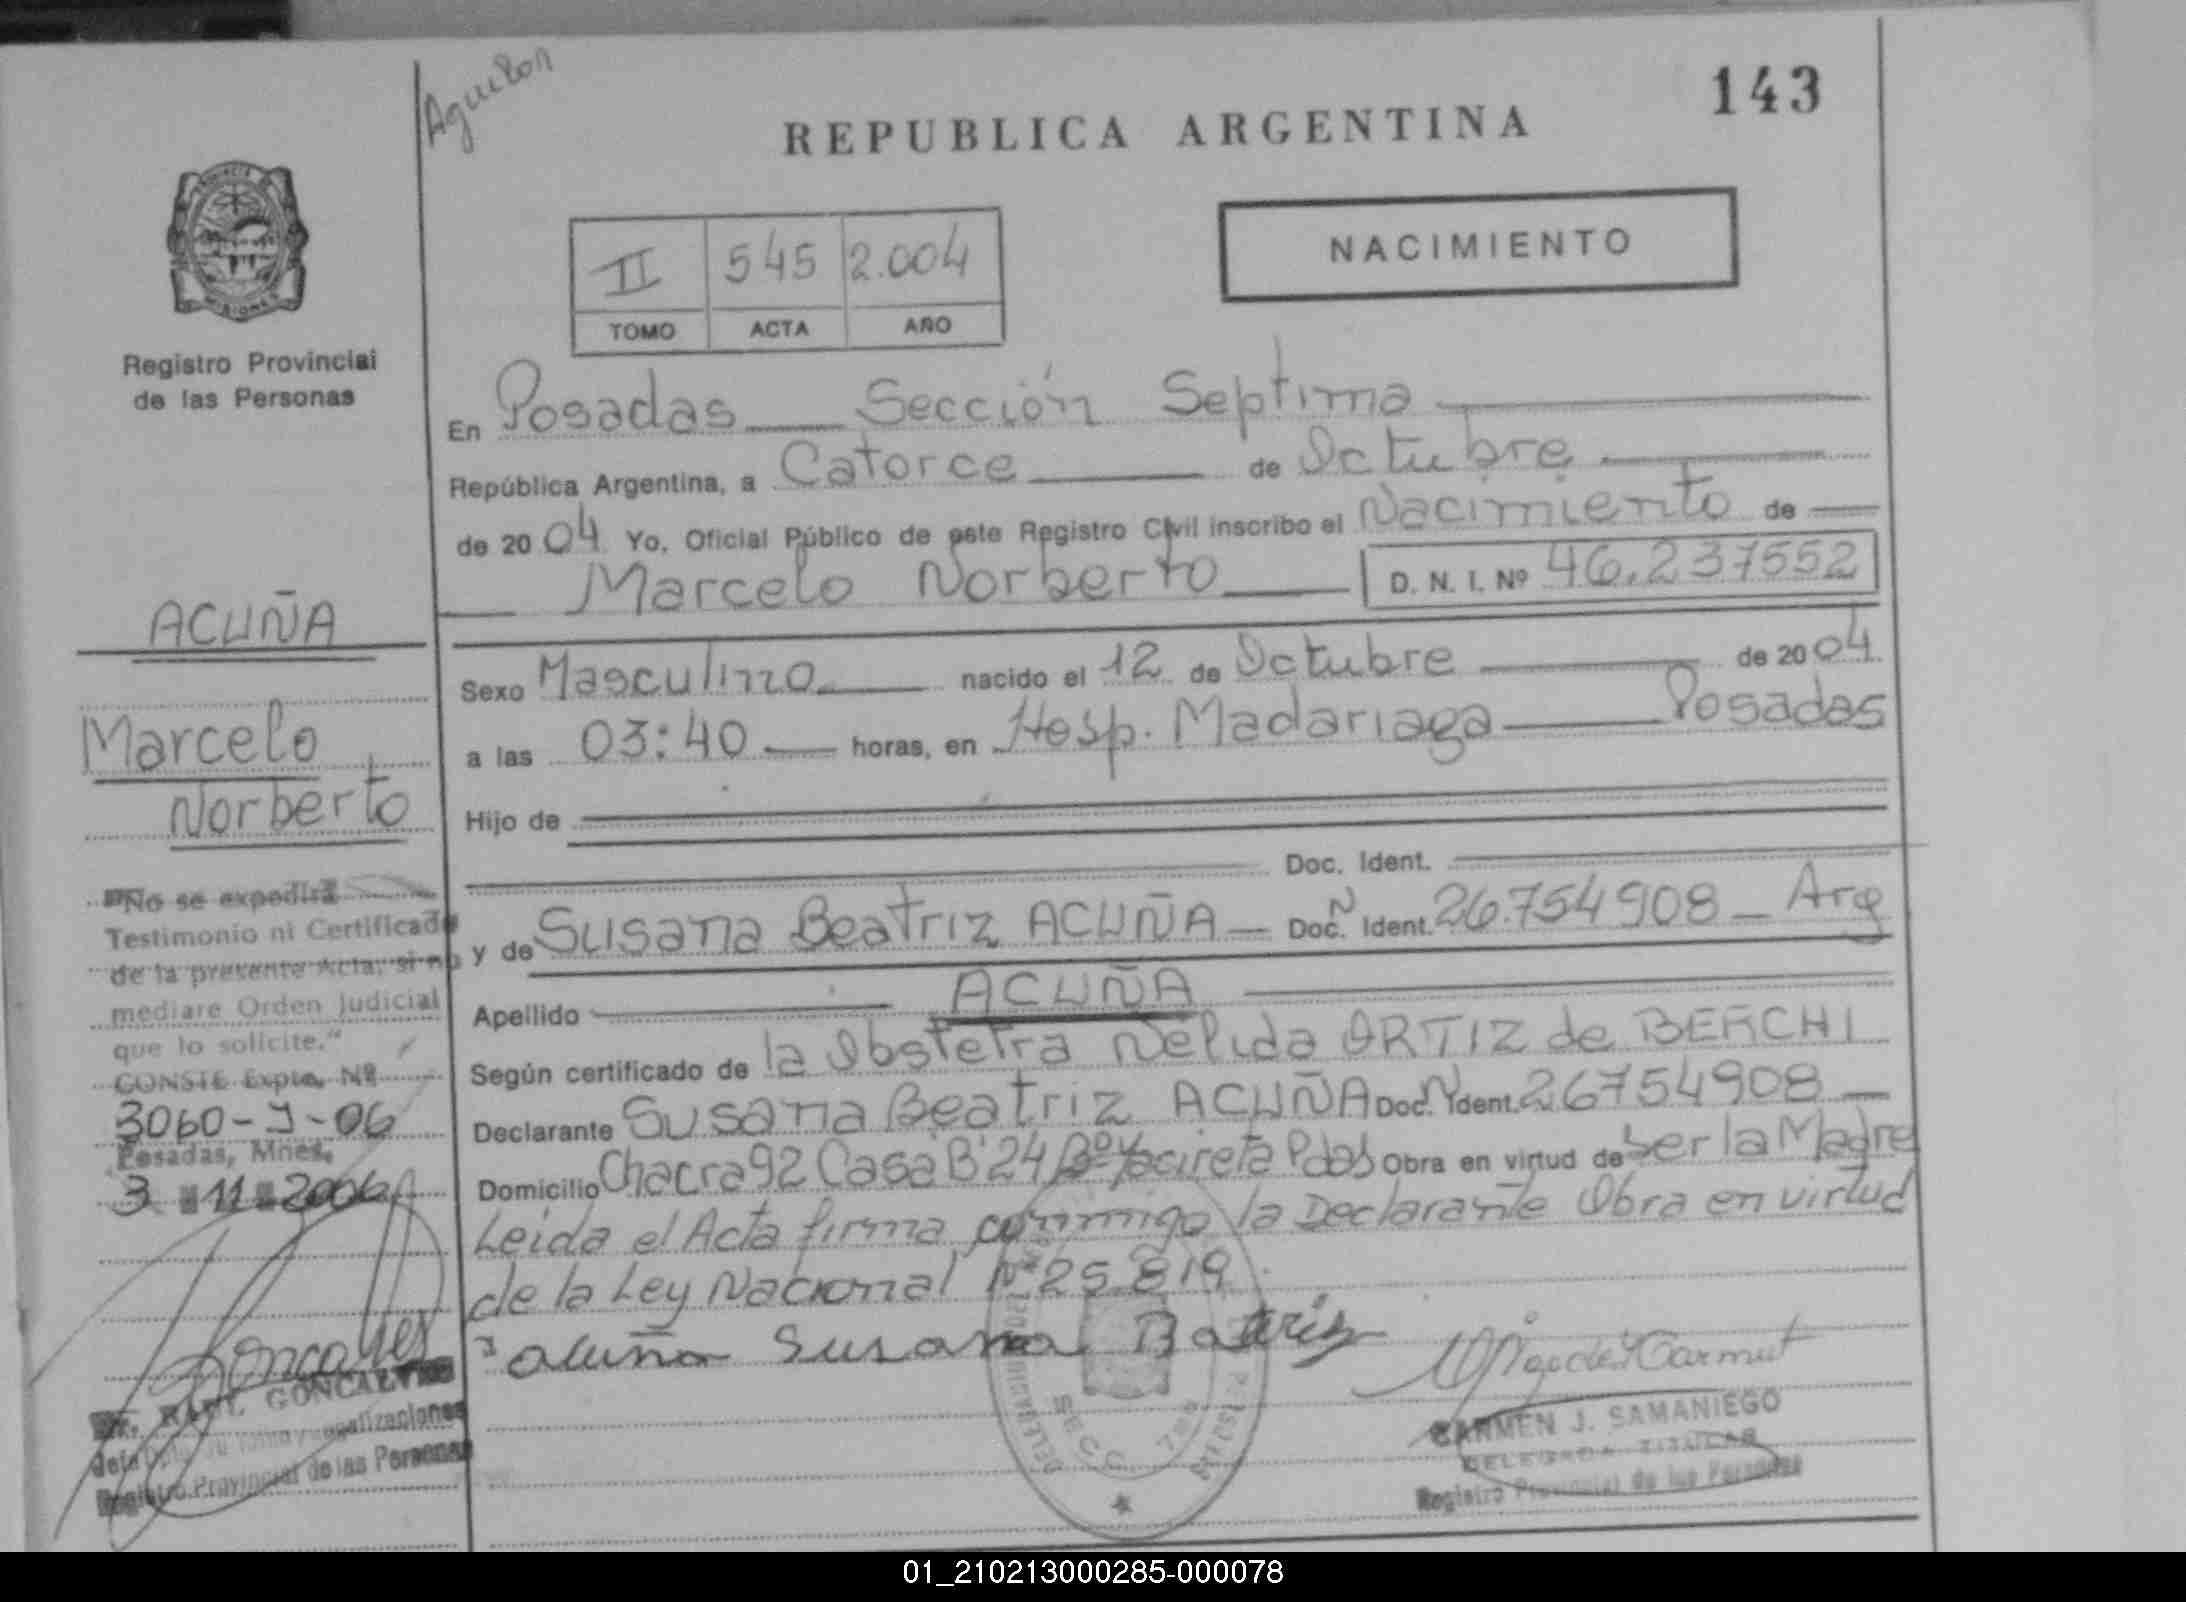 Aguilar
143
REPUBLICA ARGENTINA
NACIMIENTO
II 545 2.004
TOMO ACTA AÑO
PROVINCIA
MISIONES
Registro Provincial
de las Personas
ACUÑA
Marcelo
Norberto
"No se expedirá
Testimonio ni Certificado
de la presente Acta, si no
mediare Orden Judicial
que lo solicite."
CONSTE Expte. Nº
3060-J-06
Posadas, Mnes,
3 11 2006
Goncalves
RAUL GONCALVES
Registro Provincial de las Personas
En Posadas Sección Septima
República Argentina, a Catorce de Octubre
de 2004 Yo, Oficial Público de este Registro Civil inscribo el Nacimiento de
Marcelo Norberto D. N. I. Nº 46.237552
Sexo Masculino nacido el 12 de Octubre de 2004
a las 03:40 horas, en Hosp. Madariaga Posadas
Hijo de
Doc. Ident.
y de Susana Beatriz ACUÑA Doc. N Ident. 26.754908 Arg
Apellido ACUÑA
Según certificado de la Obstetra Nelida ORTIZ de BERCHI
Declarante Susana Beatriz ACUÑA Doc. N Ident. 26754908
Domicilio Chacra 92 Casa B' 24 Bº Yacireta Pdas Obra en virtud de Ser la Madre
Leida el Acta firma conmigo la Declarante Obra en virtud
de la Ley Nacional Nº 25.819
acuña Susana Batriz
SECC. 7ma
CARMEN J. SAMANIEGO
DELEGADA TITULAR
Registro Provincial de las Personas
01_210213000285-000078